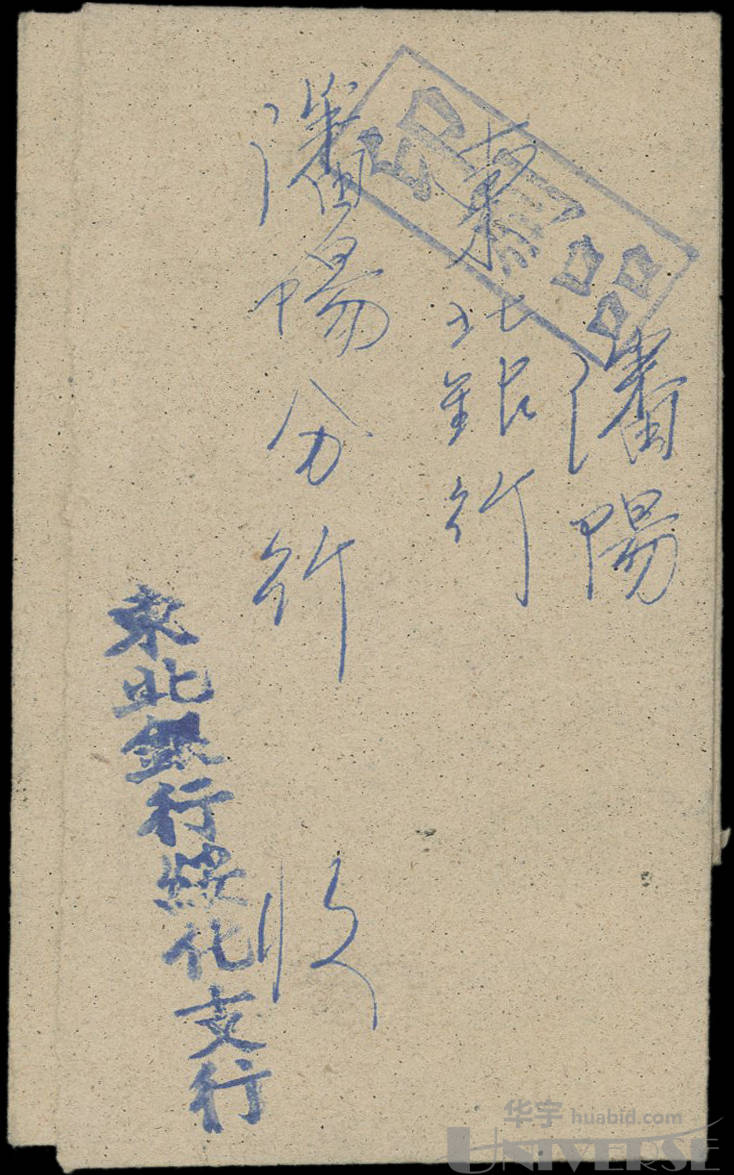 印刷品
瀋陽
東北銀行
瀋陽分行 收
東北銀行綏化支行
华宇 huabid.com
UNIVERSE